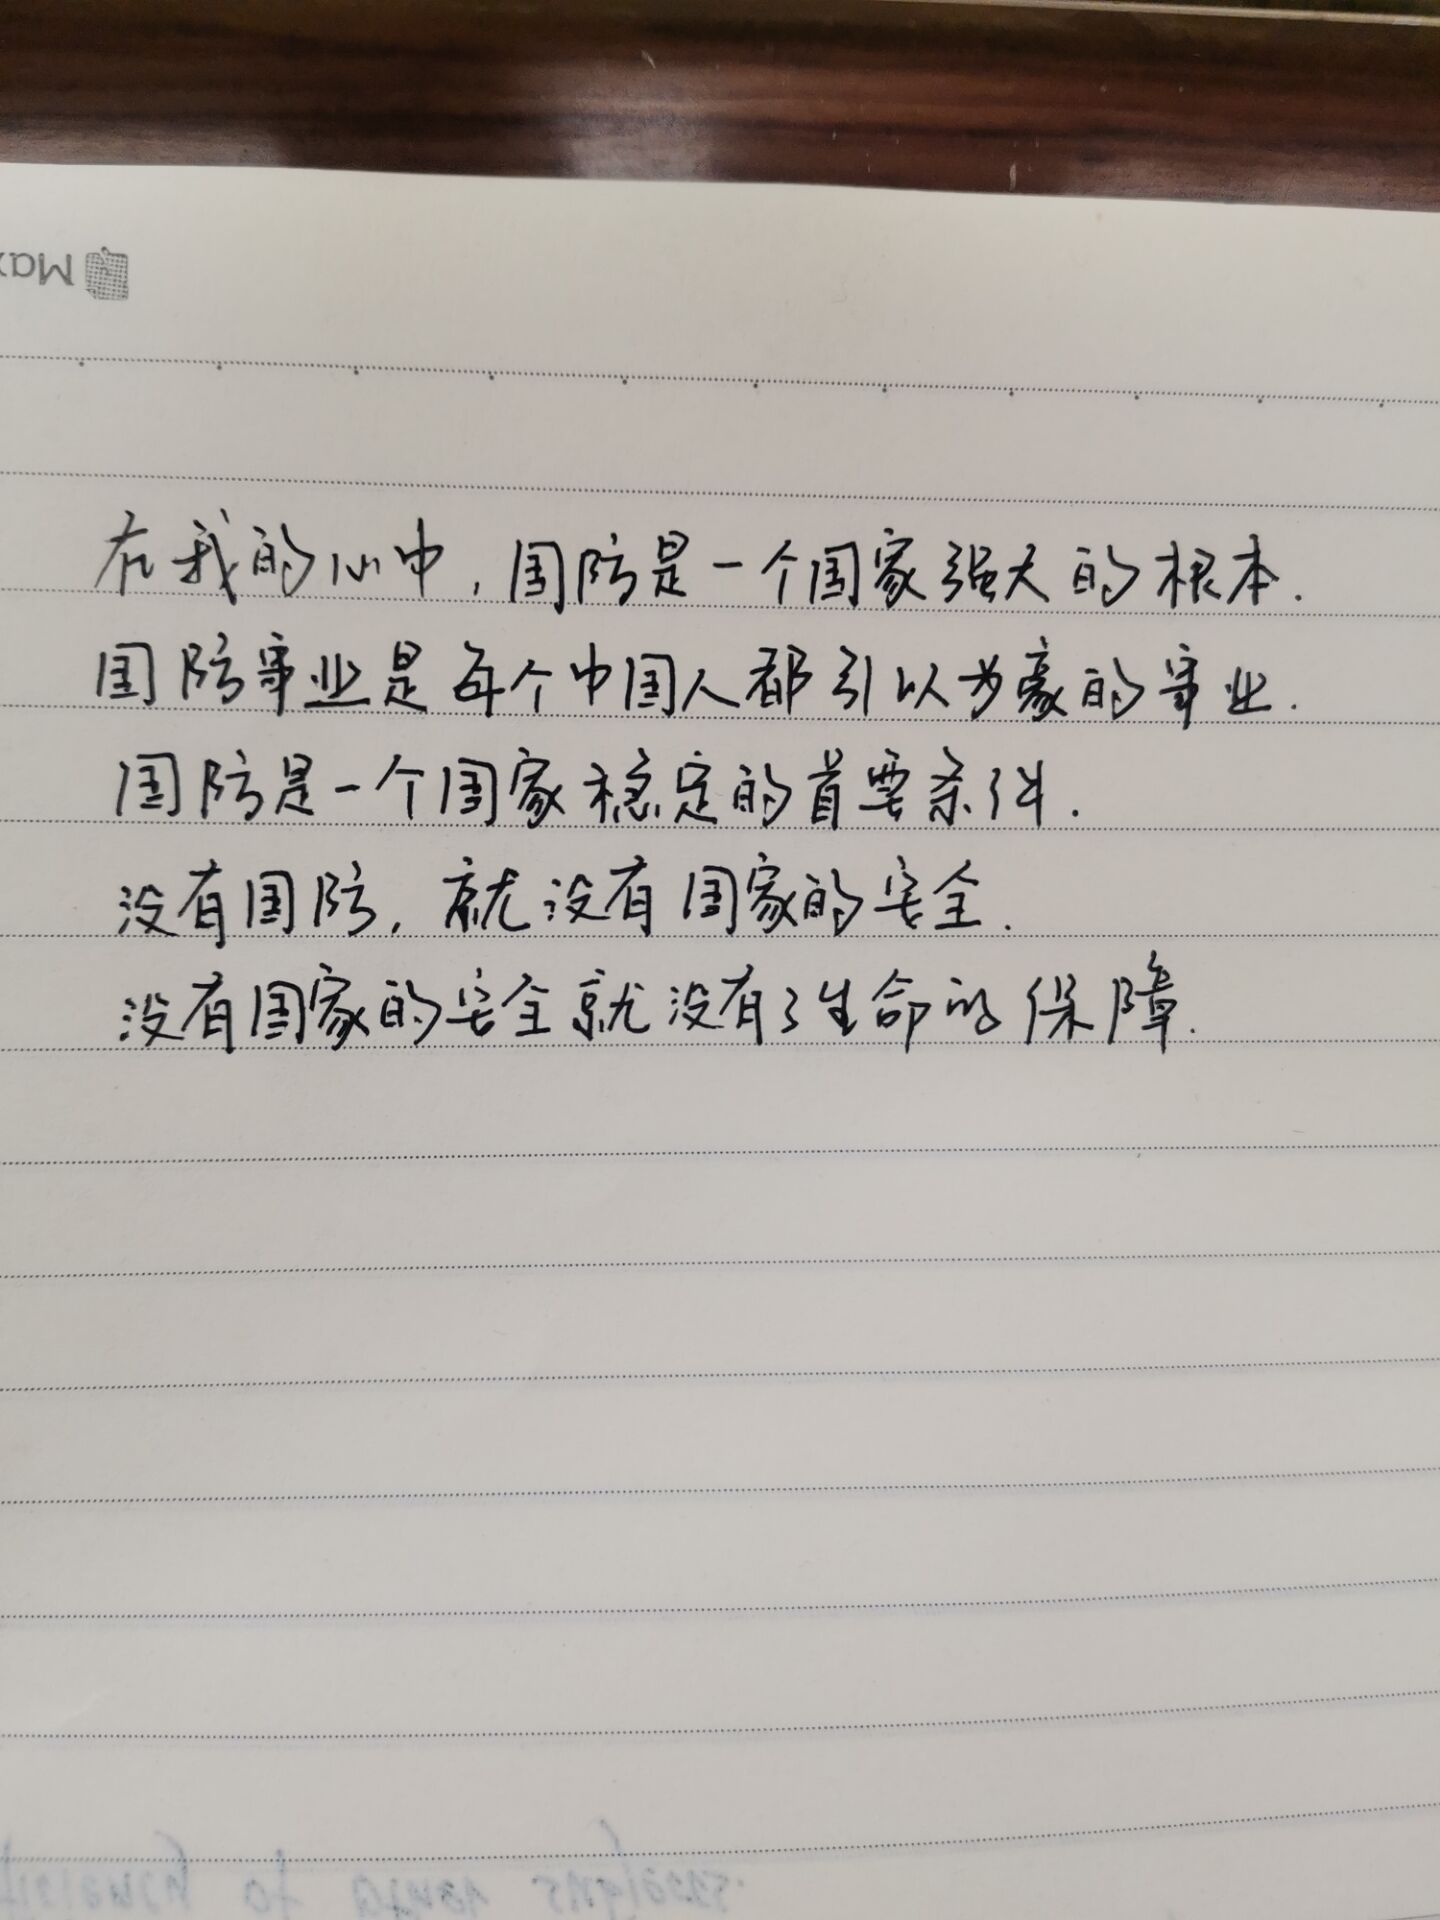 在我的心中,国防是一个国家强大的根本.
国防事业是每个中国人都引以为豪的事业.
国防是一个国家稳定的首要条件.
没有国防,就没有国家的安全.
没有国家的安全就没有了生命的保障.